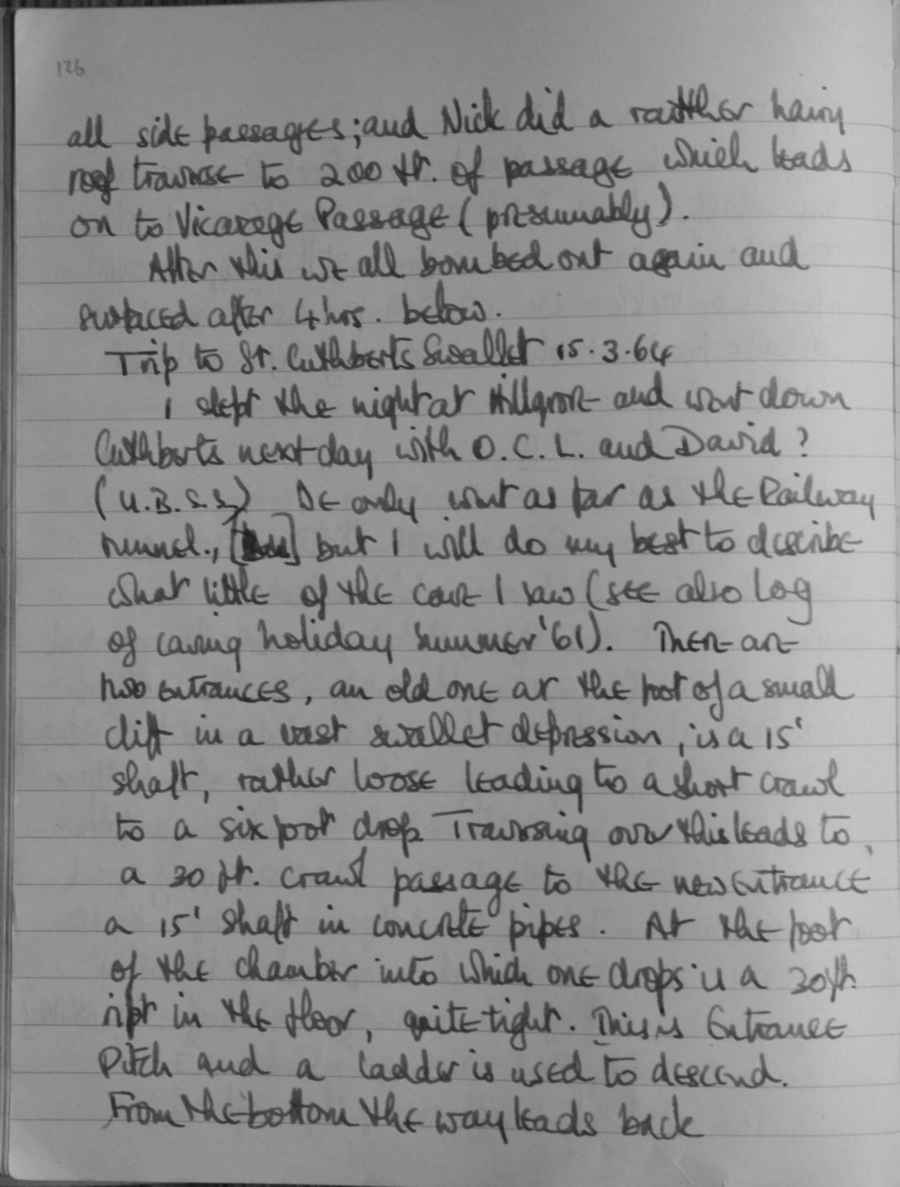 126
all side passages; and Nick did a rather hairy
roof traverse to 200 ft. of passage which leads
on to Vicarage Passage (presumably).
After this we all bombed out again and
surfaced after 4 hrs. below.
Trip to St. Cuthberts Swallet 15.3.64
I slept the night at Hillgrove and went down
Cuthberts next day with O.C.L. and David ?
(U.B.S.S.) We only went as far as the Railway
tunnel., but I will do my best to describe
what little of the cave I saw (see also Log
of caving holiday summer '61). There are
two entrances, an old one at the foot of a small
cliff in a vast swallet depression, is a 15'
shaft, rather loose leading to a short crawl
to a six foot drop Traversing over this leads to
a 30 ft. crawl passage to the new entrance
a 15' shaft in concrete pipes. At the foot
of the chamber into which one drops is a 30ft
rift in the floor, quite tight. This is Entrance
Pitch and a ladder is used to descend.
From the bottom the way leads back